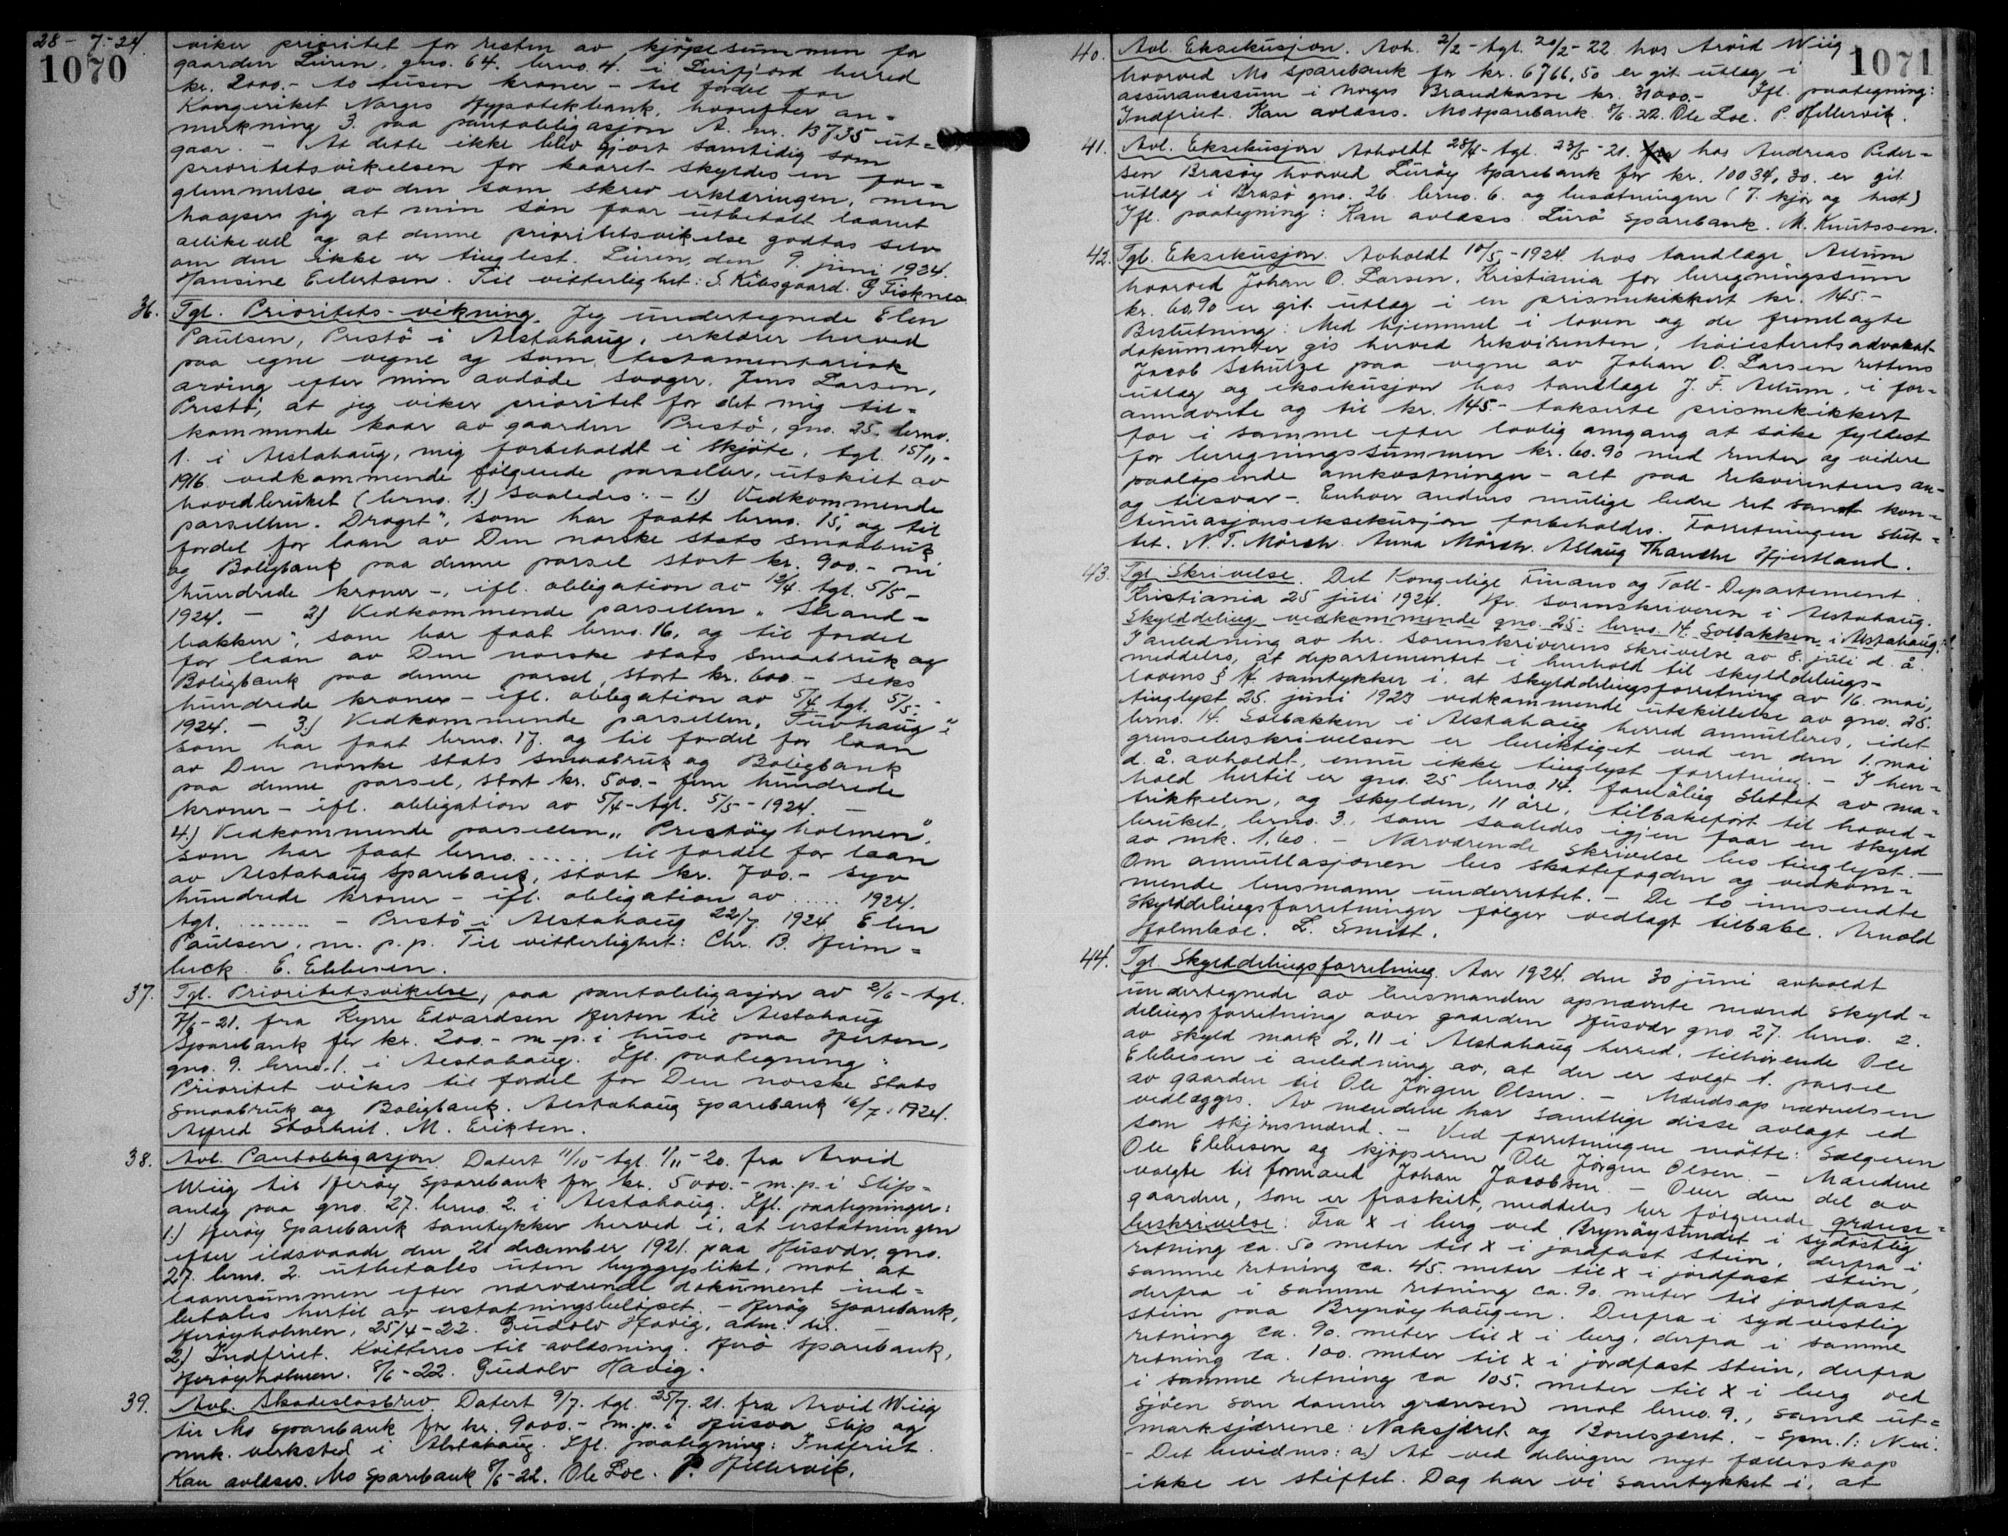 28-7-24.
1070
viker prioritet for resten av kjøpesummen for
gaarden Liren, gno. 64. brno. 4. i Leirfjord herred
kr. 2000.- to tusen kroner - til fordel for
Kongeriket Norges Hypotekbank, hvorefter an-
merkning 3. paa pantobligasjon A. nr. 13735 ut-
gaar. - At dette ikke blev gjort samtidig som
prioritetsvikelsen for kaaret skyldes en for-
glemmelse av den som skrev erklæringen, men
haaper jeg at min søn faar utbetalt laanet
allikevel og at denne prioritetsvikelse godtas selv
om den ikke er tinglest. Liren, den 9. juni 1924.
Hansine Eilertsen. Til vitterlighet: S. Kibsgaard. G Fisknes
36. Tgl. Prioritets-vikning. Jeg undertegnede Elen
Paulsen, Prestø i Alstahaug, erklærer herved
paa egne vegne og som testamentarisk
arving efter min avdøde svoger, Jens Larsen,
Prestø, at jeg viker prioritet for det mig til-
kommende kaar av gaarden Prestø, gno. 25. brno.
1. i Alstahaug, mig forbeholdt i skjøte, tgl. 15/11-
1916. vedkommende følgende parseller, utskilt av
hovedbruket (brno. 1.) saaledes: - 1.) Vedkommende
parsellen „Draget", som har faatt brno. 15, og til
fordel for laan av Den norske stats smaabruk
og Boligbank paa denne parsel stort kr. 900.- ni
hundrede kroner -, ifl. obligation av 12/4. tgl. 5/5-
1924. - 2) Vedkommende parsellen „Strand-
bakken", som har faat brno. 16, og til fordel
for laan av Den norske stats Smaabruk og
Boligbank paa denne parsel, stort kr. 600.- seks
hundrede kroner - ifl. obligation av 5/4 tgl. 5/5-
1924. - 3.) Vedkommende parsellen „Tuvhaug"
som har faat brno. 17. og til fordel for laan
av Den norske stats Smaabruk og Boligbank
paa denne parsel, stort kr. 500.- fem hundrede
kroner - ifl. obligation av 5/4- tgl. 5/5-1924. -
4.) Vedkommende parsellen „Prestøyholmen",
som har faat brno. ..... til fordel for laan
av Alstahaug Sparebank, stort kr. 700.- syv
hundrede kroner - ifl. obligation av ..... 1924.
tgl. ........ - Prestø i Alstahaug 22/7 1924 Elen
Paulsen, m. p. p. Til vitterlighet: Chr. B. Heim-
beck. E. Ebbesen.
37. Tgl. Prioritetsvikelse, paa pantobligasjon av 2/6- tgl.
-21. fra Kyrre Edvardsen Hersten til Alstahaug
Sparebank for kr. 200.- m-p. i huse paa Hersten,
gno. 9. brno. 1. i Alstahaug. Ifl. paategning:
Prioritet vikes til fordel for Den norske Stats
Smaabruk og Boligbank. Alstahaug Sparebank 16/7. 1924.
Alfred Storheil. M. Eriksen.
38. Avl. Pantobligasjon. Datert 11/10- tgl. 1/11-20. fra Arvid
Wiig til Herøy Sparebank for kr. 5000.- m.p. i Slip-
anlæg paa gno. 27. brno. 2. i Alstahaug. Ifl. paategninger:
1.) Herøy Sparebank samtykker herved i, at erstatningen
efter ildsvaade den 21 december 1921. paa Husvær, gno.
27. brno. 2. utbetales uten byggeplikt, mot at
laanesummen efter nærværende dokument ind-
betales hertil av erstatningsbeløpet. - Herøy Sparebank,
Herøyholmen, 25/4-22. Gudolv Havig, adm. dir.
2) Indfriet. Kvitteres til avlæsning. Herø Sparebank,
Herøyholmen. 8/6-22. Gudolv Havig.
39. Avl. Skadesløsbrev. Datert 9/7. tgl. 25/7. 21. fra Arvid Wiig
til Mo Sparebank for kr. 9000.- m.p. i Husvær Slip og
mek. verksted i Alstahaug. Ifl. paategning: Indfriet.
Kan avlæses. Mo Sparebank 8/6-22. Ole Loe. P. Hellervik.
1071
40. Avl. Eksekusjon. Avh. 2/2- tgl. 20/2-22 hos Arvid Wiig
hvorved Mo Sparebank for kr. 6766,50 er git utlæg i
assurancesum i Norges Brandkasse kr. 31000.- Ifl. paategning:
Indfriet. Kan avlæses. Mo Sparebank 8/6. 22. Ole Loe. P. Hellervik.
41. Avl. Eksekusjon. Avholdt 28/4- tgl. 23/5-21. hos Andreas Peder-
sen Brasøy hvorved Lurøy Sparebank for kr. 10034,30. er git
utlæg i Brasø gno. 26. brno. 6. og besætningen (7. kjør og hest)
Ifl. paategning: Kan avlæses. Lurø Sparebank. M. Knutssen.
42. Tgl. Eksekusjon. Avholdt 10/5-1924. hos tandlæge Astum
hvorved Johan O. Larsen, Kristiania for beregningssum
kr. 60,90 er git utlæg i en prismekikkert kr. 145.-
Beslutning: Med hjemmel i loven og de fremlagte
dokumenter gis herved rekvirenten, høiesteretsadvokat
Jacob Schulze paa vegne av Johan O. Larsen rettens
utlæg og eksekusjon hos tandlæge J. F. Astum, i for-
anævnte og til kr. 145.- takserte prismekikkert
for i samme efter lovlig omgang at søke fyldest
for beregningssummen kr. 60.90 med renter og videre
paaløpende omkostninger - alt paa rekvirentens an-
og tilsvar -. Enhver anders mulige bedre ret samt kon-
tinuasjonseksekusjon forbeholdes. Forretningen slut-
tet. N. T. Mörch. Anna Mörch. Aslaug Thanche Hjertland.
43. Tgl. Skrivelse. Det Kongelige Finans og Toll-Departement.
Kristiania 25 juli 1924. Hr. sorenskriveren i Alstahaug.
Skylddeling vedkommende gno. 25: brno. 14. Solbakken i Alstahaug.
I anledning av hr. sorenskriverens skrivelse av 8. juli d. å.
meddeles, at departementet i henhold til skylddelings-
lovens § samtykker i, at skylddelingsforretning av 16. mai,
tinglyst 25. juni 1923 vedkommende utskillelse av gno. 25.
brno. 14. Solbakken i Alstahaug herred annulleres, idet
grenseberskrivelsen er beriktiget ved en, den 1. mai
d. å. avholdt, ennu ikke tinglyst forretning. - I hen-
hold hertil er gno. 25 brno. 14. foreløbig slettet av ma-
trikkelen, og skylden, 11 øre, tilbakeført til hoved-
bruket, brno. 3., som saaledes igjen faar en skyld
av mk. 1,60. - Nærværende skrivelse bes tinglyst. -
Om annullasjonen bes skattefogden og vedkom-
mende lensmann underrettet. - De to innsendte
skylddelingsforretninger følger vedlagt tilbake. Arnold
Holmboe. L. Smitt.
44. Tgl. Skylddelingsforretning. Aar 1924. den 30 juni avholdt
undertegnede av lensmanden opnævnte mænd skyld-
delingsforretning over gaarden Husvær gno. 27. brno. 2.
av skyld mark 2,11 i Alstahaug herred, tilhørende Ole
Ebbesen i anledning av, at der er solgt 1. parsel
av gaarden til Ole Jörgen Olsen. - Mandsopnævnelsen
vedlægges. Av mændene har samtlige disse avlagt ed
som skjønsmænd. - Ved forretningen møtte: Sælgeren
Ole Ebbesen og kjøperen Ole Jörgen Olsen. - Mændene
valgte til formand Johan Jacobsen. - Over den del av
gaarden, som er fraskilt, meddeles her følgende grænse-
beskrivelse: Fra x i berg ved Brynøysundet i sydøstlig
retning ca. 50 meter til x i jordfast stein, derfra i
samme retning ca. 45. meter til x i jordfast stein,
derfra i samme retning ca. 90. meter til jordfast
stein paa Brynøyhaugen. Derfra i sydvestlig
retning ca. 90. meter til x i berg, derfra i samme
retning ca. 100. meter til x i jordfast stein, derfra
i samme retning ca 105. meter til x i berg ved
sjøen som danner grænsen mot brno. 9., samt ut-
marksjærene: Naksjæret og Bouelsjæret. - Spm. 1: Nei.
- Det bevidnes: a) At ved delingen nyt fællesskap
ikke er stiftet. Dag har vi samtykket i, at